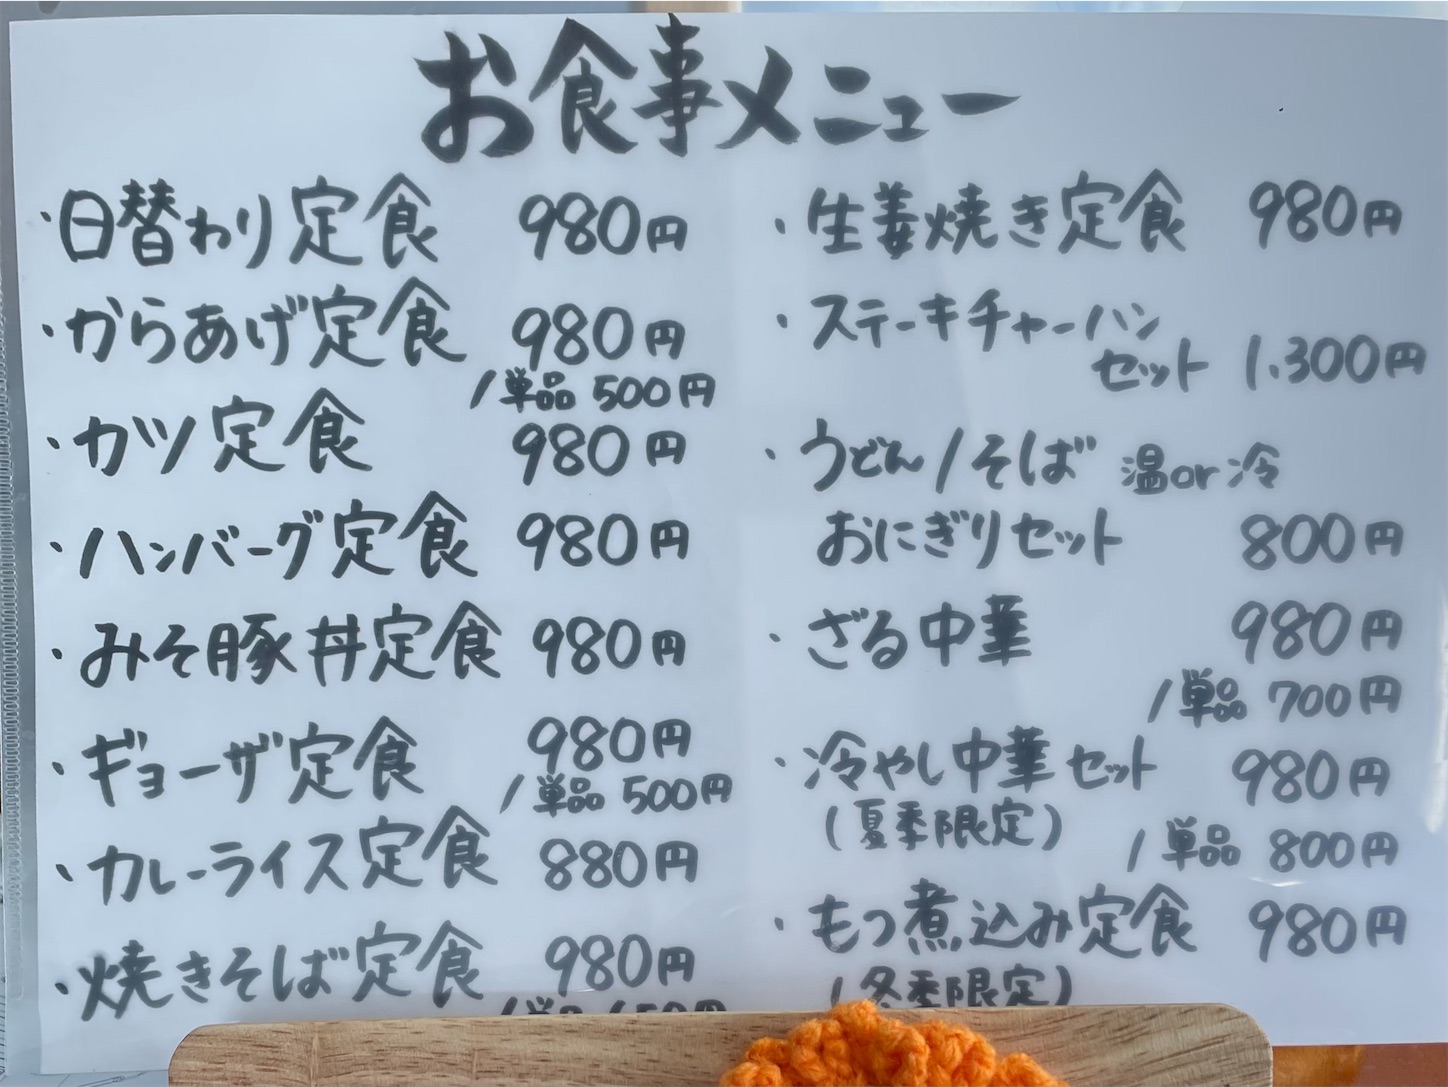 お食事メニュー
・日替わり定食 980円
・からあげ定食 980円
/単品 500円
・カツ定食 980円
・ハンバーグ定食 980円
・みそ豚丼定食 980円
・ギョーザ定食 980円
/単品 500円
・カレーライス定食 880円
・焼きそば定食 980円
・生姜焼き定食 980円
・ステーキチャーハン
セット 1.300円
・うどん/そば 温or冷
おにぎりセット 800円
・ざる中華 980円
/単品 700円
・冷やし中華セット 980円
(夏季限定)
/単品 800円
・もつ煮込み定食 980円
(冬季限定)